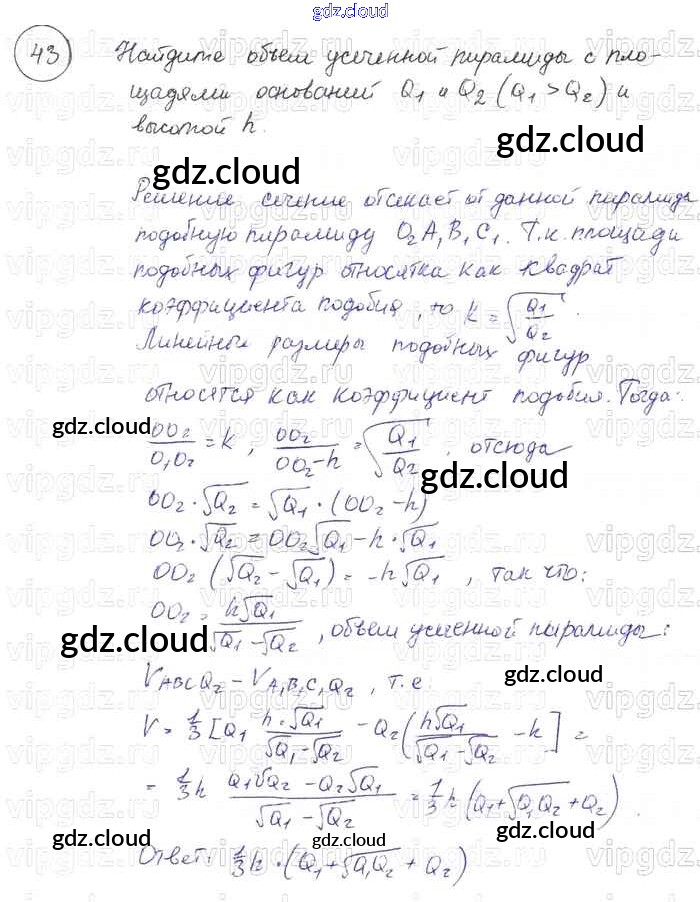 gdz.cloud
43 Найдите объем усеченной пирамиды с пло-
щадями оснований Q₁ и Q₂ (Q₁ > Q₂) и
высотой h.
gdz.cloud gdz.cloud
Решение сечение отсекает от данной пирамиды
подобную пирамиду O₂A₁B₁C₁. Т.к. площади
подобных фигур относятся как квадрат
коэффициента подобия, то k = √(Q₁/Q₂).
Линейные размеры подобных фигур
относятся как коэффициент подобия. Тогда:
gdz.cloud gdz.cloud
OO₂/O₁O₂ = k, OO₂/(OO₂-h) = √(Q₁/Q₂), отсюда
gdz.cloud
OO₂ · √Q₂ = √Q₁ · (OO₂-h)
OO₂ · √Q₂ = OO₂√Q₁ - h · √Q₁
OO₂ (√Q₂ - √Q₁) = -h√Q₁, так что:
OO₂ = h√Q₁/(√Q₁ - √Q₂), объем усеченной пирамиды:
gdz.cloud
gdz.cloud
V_ABCQ₂ - V_A₁B₁C₁Q₂, т.е.
V = 1/3 [Q₁ h·√Q₁/(√Q₁-√Q₂) - Q₂ (h√Q₁/(√Q₁-√Q₂) - h] =
= 1/3 h (Q₁√Q₂ - Q₂√Q₁)/(√Q₁ - √Q₂) = 1/3 h (Q₁+√Q₁Q₂+Q₂).
gdz.cloud gdz.cloud
gdz.cloud
Ответ: 1/3 h · (Q₁+√Q₁Q₂ + Q₂)